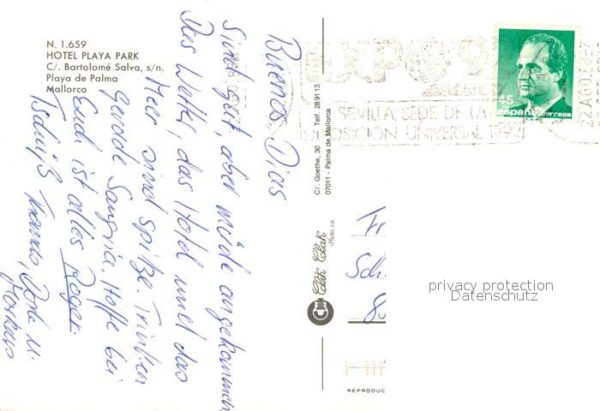 N. 1.659
HOTEL PLAYA PARK
C/. Bartolomé Salva, s/n.
Playa de Palma
Mallorca
Buenos Dias
Sind gut, aber müde angekommen
Das Wetter, das Hotel und das
Meer sind spitze. Trinken
gerade Sangria. Hoffe bei
Euch ist alles Roger.
Tschüß Thomas, Dirk u.
Markus
C/. Goethe, 30 Telf. 28 91 13
07011 - Palma de Mallorca
Clik Clak
REPRODUC
EXPO 92
SEVILLA SEDE DE LA
EXPOSICION UNIVERSAL 1992
45
españa correos
Fr
Sch
privacy protection
Datenschutz